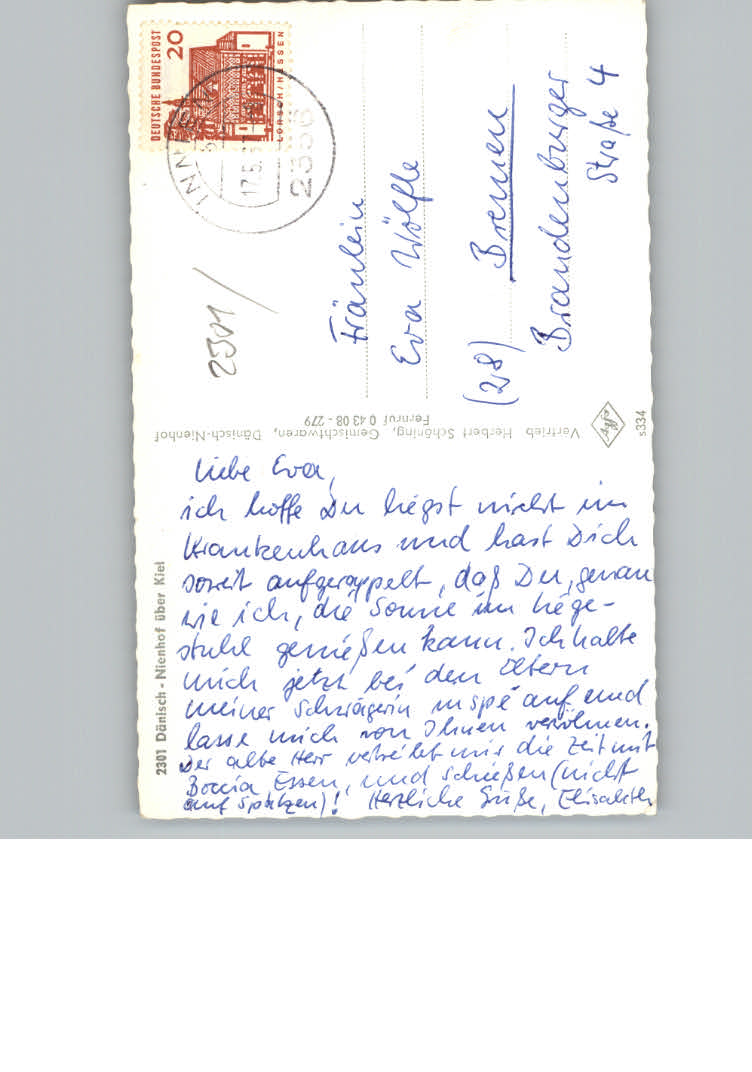 DEUTSCHE BUNDESPOST
20
LORSCH/HESSEN
17.5.
2356
2301
Fräulein
Eva Wölfle
(28) Bremen
Brandenburger
Straße 4
Vertrieb Herbert Schöning, Gemischtwaren, Dänisch-Nienhof
Fernruf 0 43 08 - 279
s334
2301 Dänisch - Nienhof über Kiel
Liebe Eva,
ich hoffe Du liegst nicht im
Krankenhaus und hast Dich
soweit aufgerappelt, daß Du, genau
wie ich, die Sonne im Liege-
stuhl genießen kann. Ich halte
mich jetzt bei den Eltern
meiner Schwägerin in spé auf und
lasse mich von Ihnen verwöhnen.
Der alte Herr vertreibt mir die Zeit mit
Boccia Essen, und schießen (nicht
auf Spatzen)! Herzliche Grüße, Elisabeth